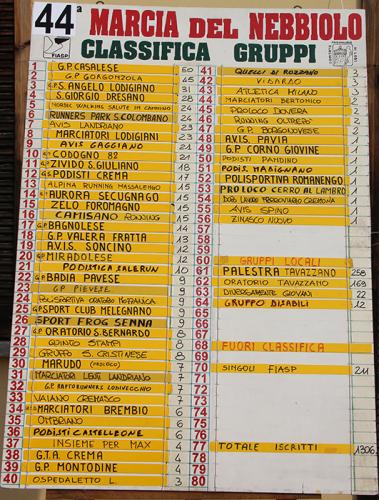 44ª MARCIA DEL NEBBIOLO
CLASSIFICA GRUPPI
FIASP
1 G.P. CASALESE 50
2 G.P. GORGONZOLA 45
3 G.S. ANGELO LODIGIANO 31
4 S. GIORGIO DRESANO 28
5 NORDIC WALKING SALUTE IN CAMMINO 24
6 RUNNERS PARK S. COLOMBANO 24
7 AVIS LANDRIANO 23
8 MARCIATORI LODIGIANI 23
9 AVIS CAGGIANO 21
10 CODOGNO 82 21
11 ZIVIDO S. GIULIANO 18
12 PODISTI CREMA 17
13 ALPINA RUNNING MASSALENGO 15
14 AURORA SECUGNAGO 15
15 ZELO FOROMAGNO 15
16 CAMISANO RUNNING 15
17 BAGNOLESE 14
18 G.P. VALERA FRATTA 13
19 A.V.I.S. SONCINO 12
20 MIRADOLESE 12
21 PODISTICA SALERUN 10
22 BADIA PAVESE 9
23 G.P. PIEVETE 9
24 POLISPORTIVA ORATORIO 9
25 SPORT CLUB MELEGNANO 9
26 SPORT FROG SENNA 9
27 ORATORIO S. BERNARDO 8
28 QUINTO STAMPI 8
29 GRUPPO S. CRISTINESE 8
30 MARUDO 7
31 MARCIATORI LENTI LANDRIANO 7
32 G.P. RAPTORUNNERS LODIVECCHIO 7
33 VAIANO CREMASCO 7
34 MARCIATORI BREMBIO 6
35 OMBRIANO 6
36 PODISTI CASTELLEONE 6
37 INSIEME PER MAX 4
38 G.T.A. CREMA 4
39 G.P. MONTODINE 4
40 OSPEDALETTO L. 3
41 QUELLI DI ROZZANO 3
42 VIBARDO 3
43 ATLETICA MILANO 3
44 MARCIATORI BERTONICO 2
45 PROLOCO DOVERA 2
46 RUNNING OLTREPO' 2
47 G.P. BORGONOVESE 2
48 AVIS PAVIA 1
49 G.P. CORNO GIOVINE 1
50 PODISTI PANDINO 1
51 PODIS. MARIGNANO 1
52 POLISPORTIVA ROMANENGO 1
53 PROLOCO CERRO AL LAMBRO 1
54 DOPO LAVORO FERROVIARIO CREMONA 1
55 AVIS SPINO 1
56 ZINASCO NUOVO 1
57
58
59
60 GRUPPI LOCALI
61 PALESTRA TAVAZZANO 258
62 ORATORIO TAVAZZANO 169
63 DIVERSAMENTE GIOVANI 22
64 GRUPPO DISABILI 12
65
66
67
68 FUORI CLASSIFICA
69
70 SINGOLI FIASP 211
71
72
73
74
75
76
77 TOTALE ISCRITTI 1306
78
79
80